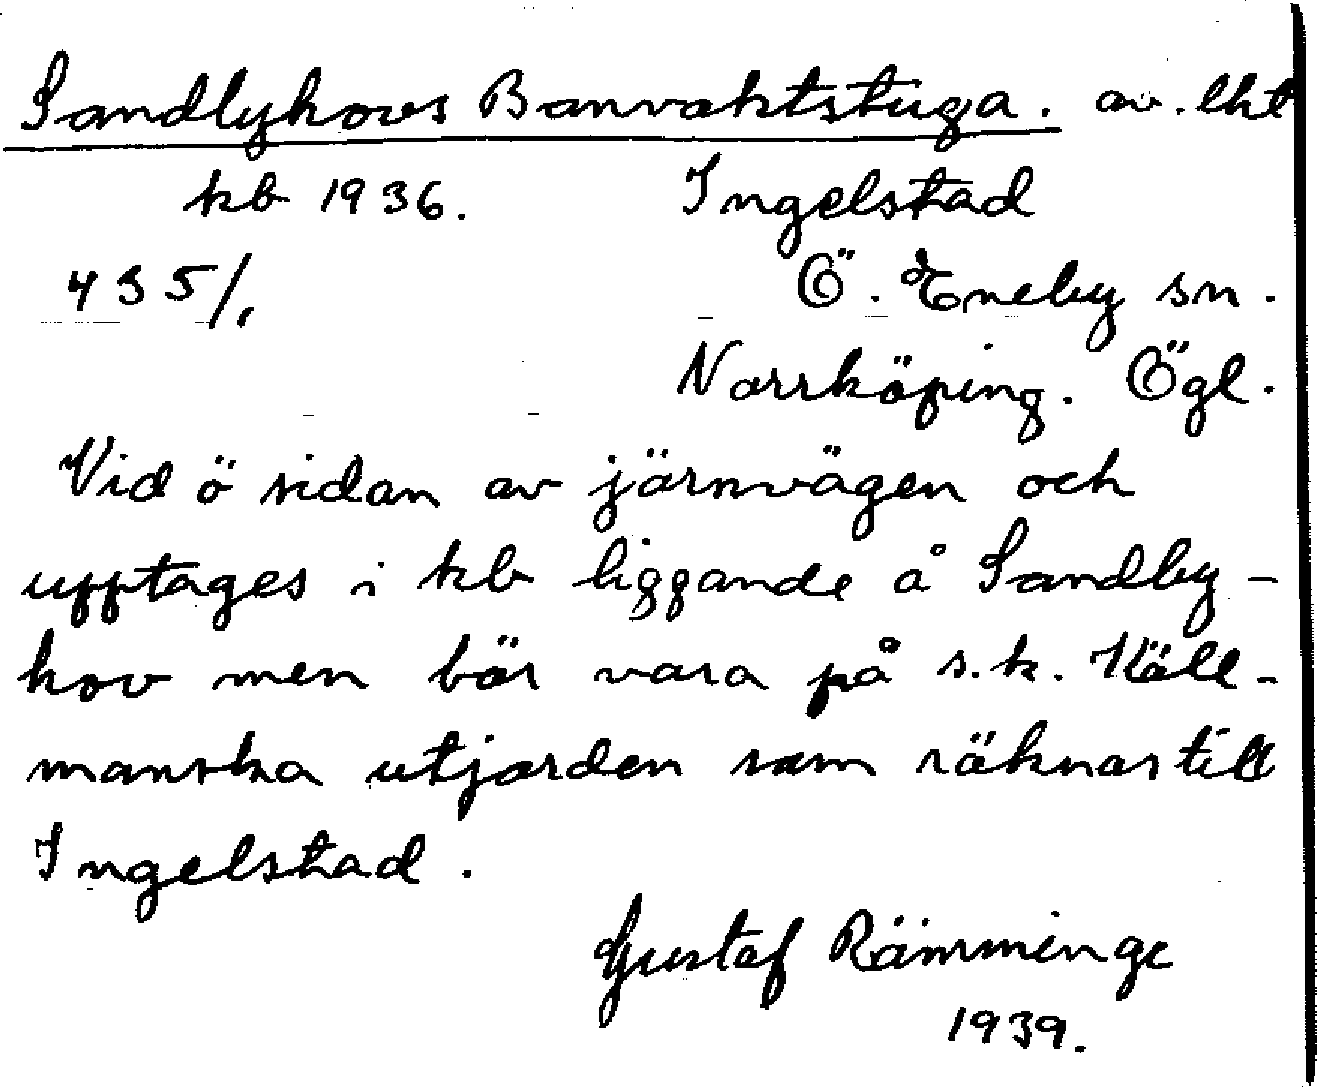 Sandbyhovs Banvaktstuga. av. lht
kb 1936. Ingelstad
435/1
Ö. Eneby sn.
Norrköping. Ögl.
Vid ö sidan av järnvägen och
upptages i kb liggande å Sandby-
hov men bör vara på s.k. Käll-
manska utjorden som räknas till
Ingelstad.
Gustaf Rämminge
1939.